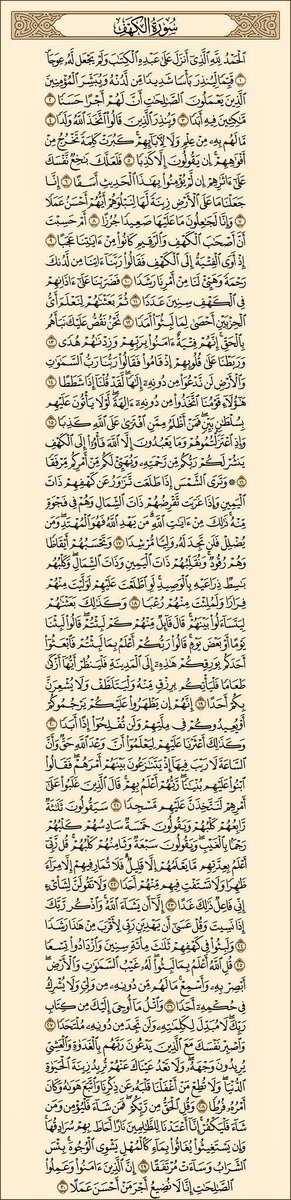 سُورَةُ الكَهْفِ
ٱلْحَمْدُ لِلَّهِ ٱلَّذِىٓ أَنزَلَ عَلَىٰ عَبْدِهِ ٱلْكِتَٰبَ وَلَمْ يَجْعَل لَّهُۥ عِوَجَاۜ
١ قَيِّمًا لِّيُنذِرَ بَأْسًا شَدِيدًا مِّن لَّدُنْهُ وَيُبَشِّرَ ٱلْمُؤْمِنِينَ
ٱلَّذِينَ يَعْمَلُونَ ٱلصَّٰلِحَٰتِ أَنَّ لَهُمْ أَجْرًا حَسَنًا ٢
مَّٰكِثِينَ فِيهِ أَبَدًا ٣ وَيُنذِرَ ٱلَّذِينَ قَالُوا۟ ٱتَّخَذَ ٱللَّهُ وَلَدًا ٤
مَّا لَهُم بِهِۦ مِنْ عِلْمٍ وَلَا لِءَابَآئِهِمْ ۚ كَبُرَتْ كَلِمَةً تَخْرُجُ مِنْ
أَفْوَٰهِهِمْ ۚ إِن يَقُولُونَ إِلَّا كَذِبًا ٥ فَلَعَلَّكَ بَٰخِعٌ نَّفْسَكَ
عَلَىٰٓ ءَاثَٰرِهِمْ إِن لَّمْ يُؤْمِنُوا۟ بِهَٰذَا ٱلْحَدِيثِ أَسَفًا ٦ إِنَّا
جَعَلْنَا مَا عَلَى ٱلْأَرْضِ زِينَةً لَّهَا لِنَبْلُوَهُمْ أَيُّهُمْ أَحْسَنُ عَمَلًا
٧ وَإِنَّا لَجَٰعِلُونَ مَا عَلَيْهَا صَعِيدًا جُرُزًا ٨ أَمْ حَسِبْتَ
أَنَّ أَصْحَٰبَ ٱلْكَهْفِ وَٱلرَّقِيمِ كَانُوا۟ مِنْ ءَايَٰتِنَا عَجَبًا ٩
إِذْ أَوَى ٱلْفِتْيَةُ إِلَى ٱلْكَهْفِ فَقَالُوا۟ رَبَّنَآ ءَاتِنَا مِن لَّدُنكَ
رَحْمَةً وَهَيِّئْ لَنَا مِنْ أَمْرِنَا رَشَدًا ١٠ فَضَرَبْنَا عَلَىٰٓ ءَاذَانِهِمْ
فِى ٱلْكَهْفِ سِنِينَ عَدَدًا ١١ ثُمَّ بَعَثْنَٰهُمْ لِنَعْلَمَ أَىُّ
ٱلْحِزْبَيْنِ أَحْصَىٰ لِمَا لَبِثُوٓا۟ أَمَدًا ١٢ نَّحْنُ نَقُصُّ عَلَيْكَ نَبَأَهُم
بِٱلْحَقِّ ۚ إِنَّهُمْ فِتْيَةٌ ءَامَنُوا۟ بِرَبِّهِمْ وَزِدْنَٰهُمْ هُدًى ١٣
وَرَبَطْنَا عَلَىٰ قُلُوبِهِمْ إِذْ قَامُوا۟ فَقَالُوا۟ رَبُّنَا رَبُّ ٱلسَّمَٰوَٰتِ
وَٱلْأَرْضِ لَن نَّدْعُوَا۟ مِن دُونِهِۦٓ إِلَٰهًا ۖ لَّقَدْ قُلْنَآ إِذًا شَطَطًا
١٤ هَٰٓؤُلَآءِ قَوْمُنَا ٱتَّخَذُوا۟ مِن دُونِهِۦٓ ءَالِهَةً ۖ لَّوْلَا يَأْتُونَ عَلَيْهِم
بِسُلْطَٰنٍۭ بَيِّنٍ ۖ فَمَنْ أَظْلَمُ مِمَّنِ ٱفْتَرَىٰ عَلَى ٱللَّهِ كَذِبًا ١٥
وَإِذِ ٱعْتَزَلْتُمُوهُمْ وَمَا يَعْبُدُونَ إِلَّا ٱللَّهَ فَأْوُۥٓا۟ إِلَى ٱلْكَهْفِ
يَنشُرْ لَكُمْ رَبُّكُم مِّن رَّحْمَتِهِۦ وَيُهَيِّئْ لَكُم مِّنْ أَمْرِكُم مِّرْفَقًا
١٦ ۞ وَتَرَى ٱلشَّمْسَ إِذَا طَلَعَت تَّزَٰوَرُ عَن كَهْفِهِمْ ذَاتَ
ٱلْيَمِينِ وَإِذَا غَرَبَت تَّقْرِضُهُمْ ذَاتَ ٱلشِّمَالِ وَهُمْ فِى فَجْوَةٍ
مِّنْهُ ۚ ذَٰلِكَ مِنْ ءَايَٰتِ ٱللَّهِ ۗ مَن يَهْدِ ٱللَّهُ فَهُوَ ٱلْمُهْتَدِ ۖ وَمَن
يُضْلِلْ فَلَن تَجِدَ لَهُۥ وَلِيًّا مُّرْشِدًا ١٧ وَتَحْسَبُهُمْ أَيْقَاظًا
وَهُمْ رُقُودٌ ۚ وَنُقَلِّبُهُمْ ذَاتَ ٱلْيَمِينِ وَذَاتَ ٱلشِّمَالِ ۖ وَكَلْبُهُم
بَٰسِطٌ ذِرَاعَيْهِ بِٱلْوَصِيدِ ۚ لَوِ ٱطَّلَعْتَ عَلَيْهِمْ لَوَلَّيْتَ مِنْهُمْ
فِرَارًا وَلَمُلِئْتَ مِنْهُمْ رُعْبًا ١٨ وَكَذَٰلِكَ بَعَثْنَٰهُمْ
لِيَتَسَآءَلُوا۟ بَيْنَهُمْ ۚ قَالَ قَآئِلٌ مِّنْهُمْ كَمْ لَبِثْتُمْ ۖ قَالُوا۟ لَبِثْنَا
يَوْمًا أَوْ بَعْضَ يَوْمٍ ۚ قَالُوا۟ رَبُّكُمْ أَعْلَمُ بِمَا لَبِثْتُمْ فَٱبْعَثُوٓا۟
أَحَدَكُم بِوَرِقِكُمْ هَٰذِهِۦٓ إِلَى ٱلْمَدِينَةِ فَلْيَنظُرْ أَيُّهَآ أَزْكَىٰ
طَعَامًا فَلْيَأْتِكُم بِرِزْقٍ مِّنْهُ وَلْيَتَلَطَّفْ وَلَا يُشْعِرَنَّ
بِكُمْ أَحَدًا ١٩ إِنَّهُمْ إِن يَظْهَرُوا۟ عَلَيْكُمْ يَرْجُمُوكُمْ
أَوْ يُعِيدُوكُمْ فِى مِلَّتِهِمْ وَلَن تُفْلِحُوٓا۟ إِذًا أَبَدًا ٢٠
وَكَذَٰلِكَ أَعْثَرْنَا عَلَيْهِمْ لِيَعْلَمُوٓا۟ أَنَّ وَعْدَ ٱللَّهِ حَقٌّ وَأَنَّ
ٱلسَّاعَةَ لَا رَيْبَ فِيهَآ إِذْ يَتَنَٰزَعُونَ بَيْنَهُمْ أَمْرَهُمْ ۖ فَقَالُوا۟
ٱبْنُوا۟ عَلَيْهِم بُنْيَٰنًا ۖ رَّبُّهُمْ أَعْلَمُ بِهِمْ ۚ قَالَ ٱلَّذِينَ غَلَبُوا۟ عَلَىٰٓ
أَمْرِهِمْ لَنَتَّخِذَنَّ عَلَيْهِم مَّسْجِدًا ٢١ سَيَقُولُونَ ثَلَٰثَةٌ
رَّابِعُهُمْ كَلْبُهُمْ وَيَقُولُونَ خَمْسَةٌ سَادِسُهُمْ كَلْبُهُمْ
رَجْمًۢا بِٱلْغَيْبِ ۖ وَيَقُولُونَ سَبْعَةٌ وَثَامِنُهُمْ كَلْبُهُمْ ۚ قُل رَّبِّىٓ
أَعْلَمُ بِعِدَّتِهِم مَّا يَعْلَمُهُمْ إِلَّا قَلِيلٌ ۗ فَلَا تُمَارِ فِيهِمْ إِلَّا مِرَآءً
ظَٰهِرًا وَلَا تَسْتَفْتِ فِيهِم مِّنْهُمْ أَحَدًا ٢٢ وَلَا تَقُولَنَّ لِشَا۟ىْءٍ
إِنِّى فَاعِلٌ ذَٰلِكَ غَدًا ٢٣ إِلَّآ أَن يَشَآءَ ٱللَّهُ ۚ وَٱذْكُر رَّبَّكَ
إِذَا نَسِيتَ وَقُلْ عَسَىٰٓ أَن يَهْدِيَنِ رَبِّى لِأَقْرَبَ مِنْ هَٰذَا رَشَدًا
٢٤ وَلَبِثُوا۟ فِى كَهْفِهِمْ ثَلَٰثَ مِا۟ئَةٍ سِنِينَ وَٱزْدَادُوا۟ تِسْعًا
٢٥ قُلِ ٱللَّهُ أَعْلَمُ بِمَا لَبِثُوا۟ ۖ لَهُۥ غَيْبُ ٱلسَّمَٰوَٰتِ وَٱلْأَرْضِ ۖ
أَبْصِرْ بِهِۦ وَأَسْمِعْ ۚ مَا لَهُم مِّن دُونِهِۦ مِن وَلِىٍّ وَلَا يُشْرِكُ
فِى حُكْمِهِۦٓ أَحَدًا ٢٦ وَٱتْلُ مَآ أُوحِىَ إِلَيْكَ مِن كِتَابِ
رَبِّكَ ۖ لَا مُبَدِّلَ لِكَلِمَٰتِهِۦ وَلَن تَجِدَ مِن دُونِهِۦ مُلْتَحَدًا ٢٧
وَٱصْبِرْ نَفْسَكَ مَعَ ٱلَّذِينَ يَدْعُونَ رَبَّهُم بِٱلْغَدَوٰةِ وَٱلْعَشِىِّ
يُرِيدُونَ وَجْهَهُۥ ۖ وَلَا تَعْدُ عَيْنَاكَ عَنْهُمْ تُرِيدُ زِينَةَ ٱلْحَيَوٰةِ
ٱلدُّنْيَا ۖ وَلَا تُطِعْ مَنْ أَغْفَلْنَا قَلْبَهُۥ عَن ذِكْرِنَا وَٱتَّبَعَ هَوَىٰهُ وَكَانَ
أَمْرُهُۥ فُرُطًا ٢٨ وَقُلِ ٱلْحَقُّ مِن رَّبِّكُمْ ۖ فَمَن شَآءَ فَلْيُؤْمِن وَمَن
شَآءَ فَلْيَكْفُرْ ۚ إِنَّآ أَعْتَدْنَا لِلظَّٰلِمِينَ نَارًا أَحَاطَ بِهِمْ سُرَادِقُهَا ۚ
وَإِن يَسْتَغِيثُوا۟ يُغَاثُوا۟ بِمَآءٍ كَٱلْمُهْلِ يَشْوِى ٱلْوُجُوهَ ۚ بِئْسَ
ٱلشَّرَابُ وَسَآءَتْ مُرْتَفَقًا ٢٩ إِنَّ ٱلَّذِينَ ءَامَنُوا۟ وَعَمِلُوا۟
ٱلصَّٰلِحَٰتِ إِنَّا لَا نُضِيعُ أَجْرَ مَنْ أَحْسَنَ عَمَلًا ٣٠